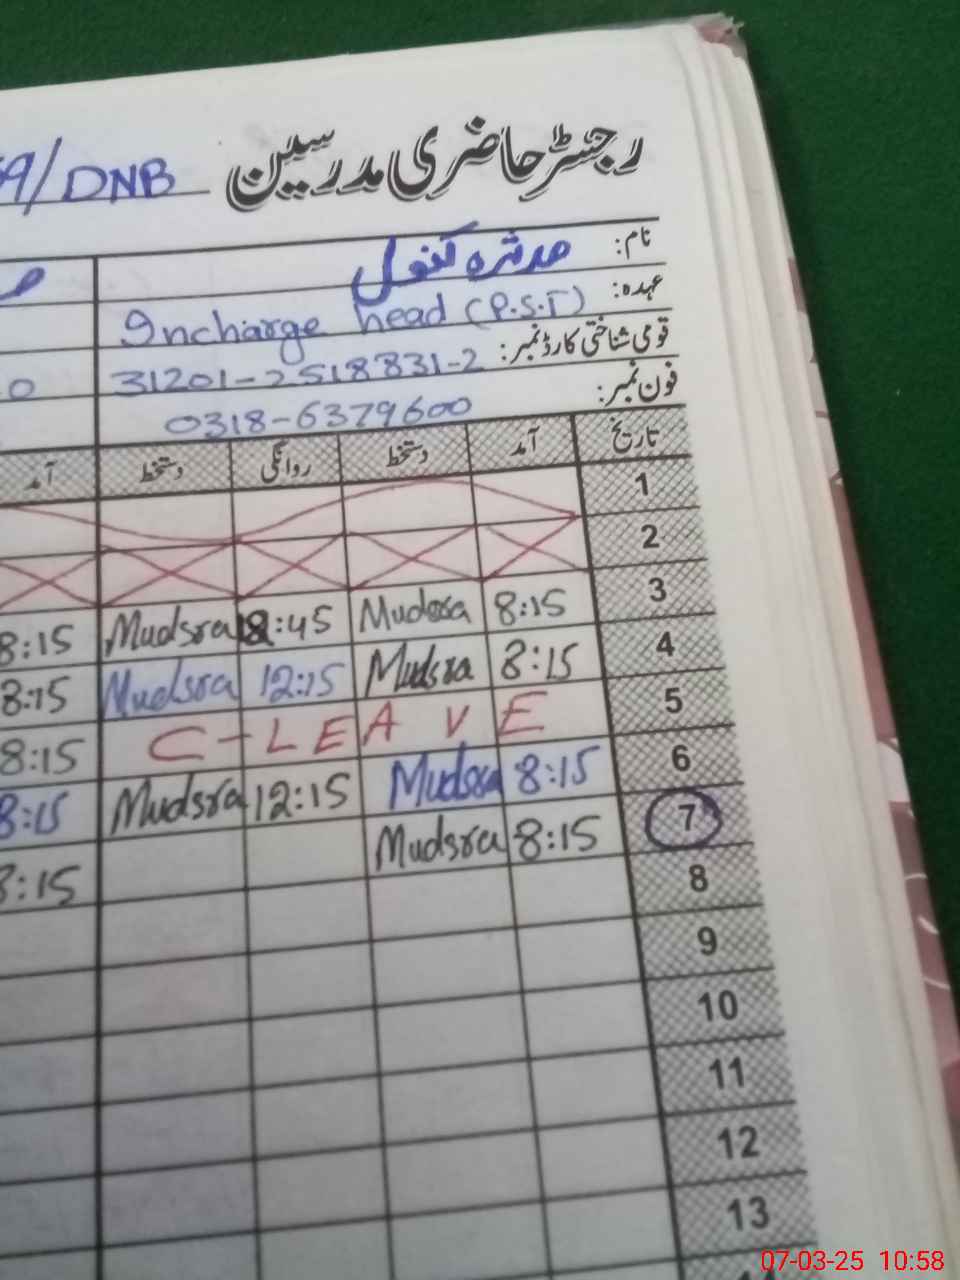 رجسٹر حاضری مدرسین 59/DNB
نام: مدثرہ کنول
عہدہ: Incharge head (P.S.T)
قومی شناختی کارڈ نمبر: 31201-2518831-2
فون نمبر: 0318-6379600
تاریخ آمد دستخط روانگی دستخط آمد
1
2
3 8:15 Mudsra :45 Mudsra 8:15
4 8:15 Mudsra 12:15 Mudsra 8:15
5 C-LEAVE 8:15
6 8:15 Mudsra 12:15 Mudsra 8:15
7 8:15 Mudsra 8:15
8
9
10
11
12
13
07-03-25 10:58